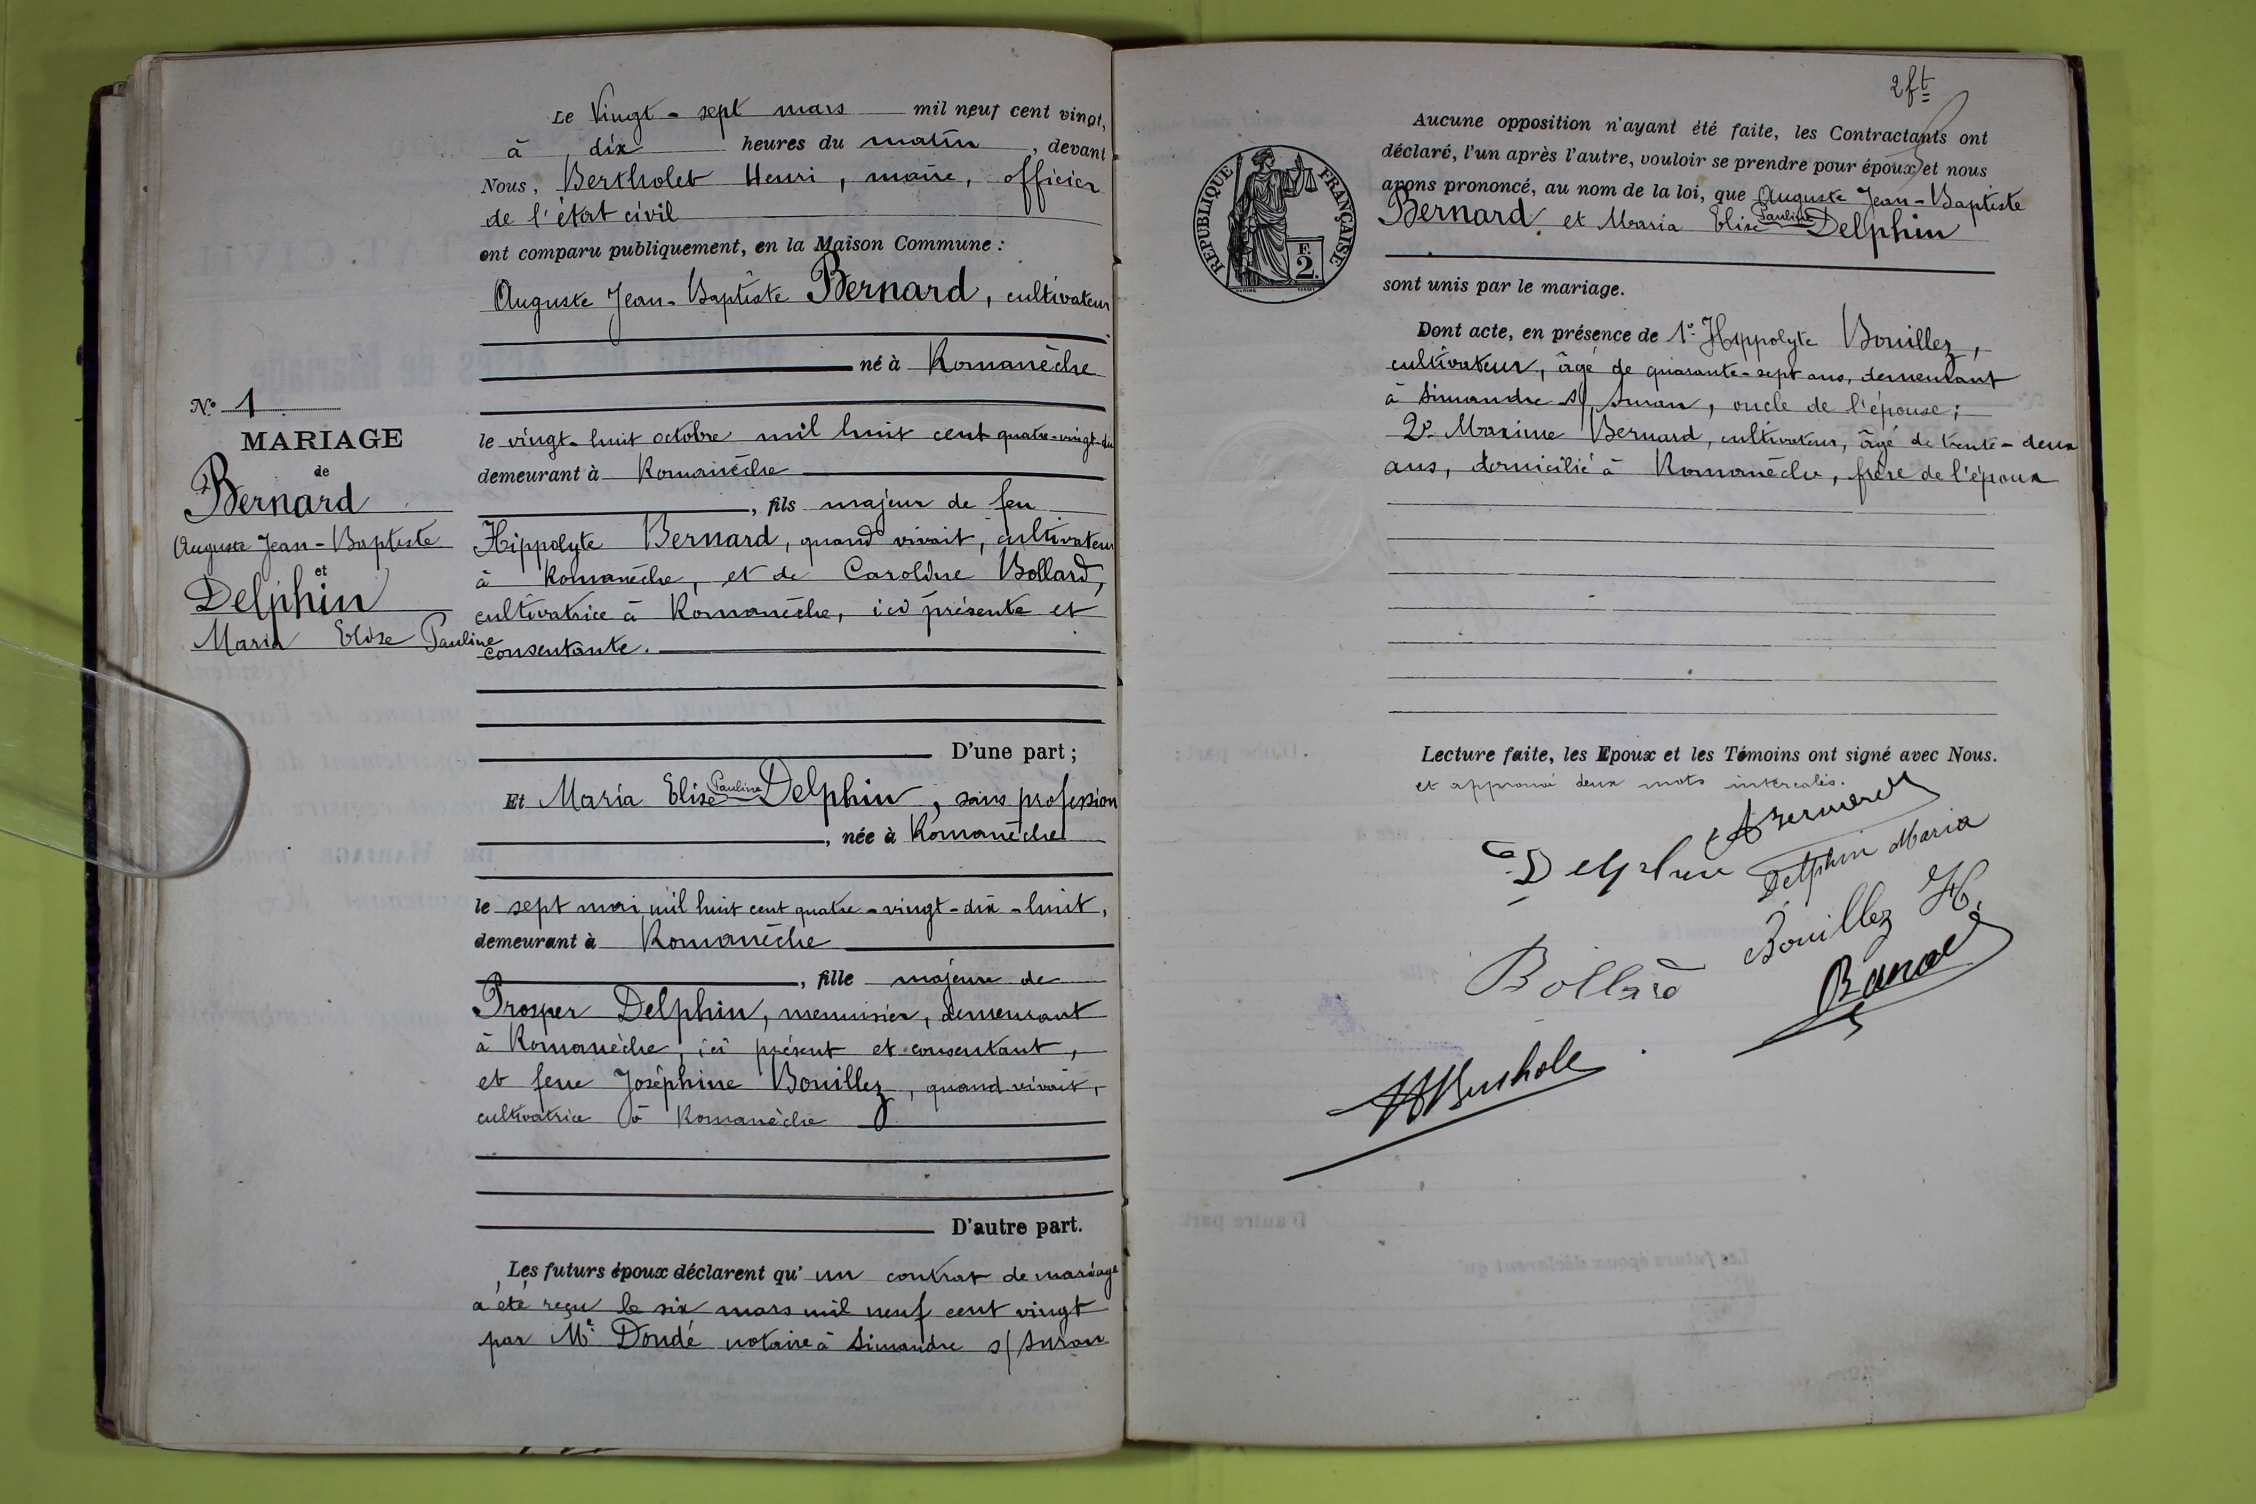 Le Vingt-sept mars mil neuf cent vingt,
à dix heures du matin, devant
Nous, Bertholet Henri, maire, officier
de l'état civil
ont comparu publiquement, en la Maison Commune :
Auguste Jean-Baptiste Bernard, cultivateur
né à Romanèche
le vingt-huit octobre mil huit cent quatre-vingt-dix
demeurant à Romanèche
, fils majeur de feu
Hippolyte Bernard, quand vivait, cultivateur
à Romanèche, et de Caroline Bollard,
cultivatrice à Romanèche, ici présente et
consentante.
D'une part ;
Et Maria Elise Pauline Delphin, sans profession
, née à Romanèche
le sept mai mil huit cent quatre-vingt-dix-huit,
demeurant à Romanèche
, fille majeure de
Prosper Delphin, menuisier, demeurant
à Romanèche, ici présent et consentant,
et feue Joséphine Bouillez, quand vivait,
cultivatrice à Romanèche
D'autre part.
Les futurs époux déclarent qu'un contrat de mariage
a été reçu le six mars mil neuf cent vingt
par Me Doudé notaire à Simandre s/ Suran
N° 1
MARIAGE
de
Bernard
Auguste Jean-Baptiste
et
Delphin
Maria Elise Pauline
2 ft
RÉPUBLIQUE FRANÇAISE
F.
2.
Aucune opposition n'ayant été faite, les Contractants ont
déclaré, l'un après l'autre, vouloir se prendre pour époux et nous
avons prononcé, au nom de la loi, que Auguste Jean-Baptiste
Bernard et Maria Elise Pauline Delphin
sont unis par le mariage.
Dont acte, en présence de 1° Hippolyte Bouillez,
cultivateur, âgé de quarante-sept ans, demeurant
à Simandre s/ Suran, oncle de l'épouse ;
2° Maxime Bernard, cultivateur, âgé de trente-deux
ans, domicilié à Romanèche, frère de l'époux
Lecture faite, les Epoux et les Témoins ont signé avec Nous.
et approuvé deux mots intercalés.
A Bernard
Delphin
Delphin Maria
Bouillez H.
Bollard